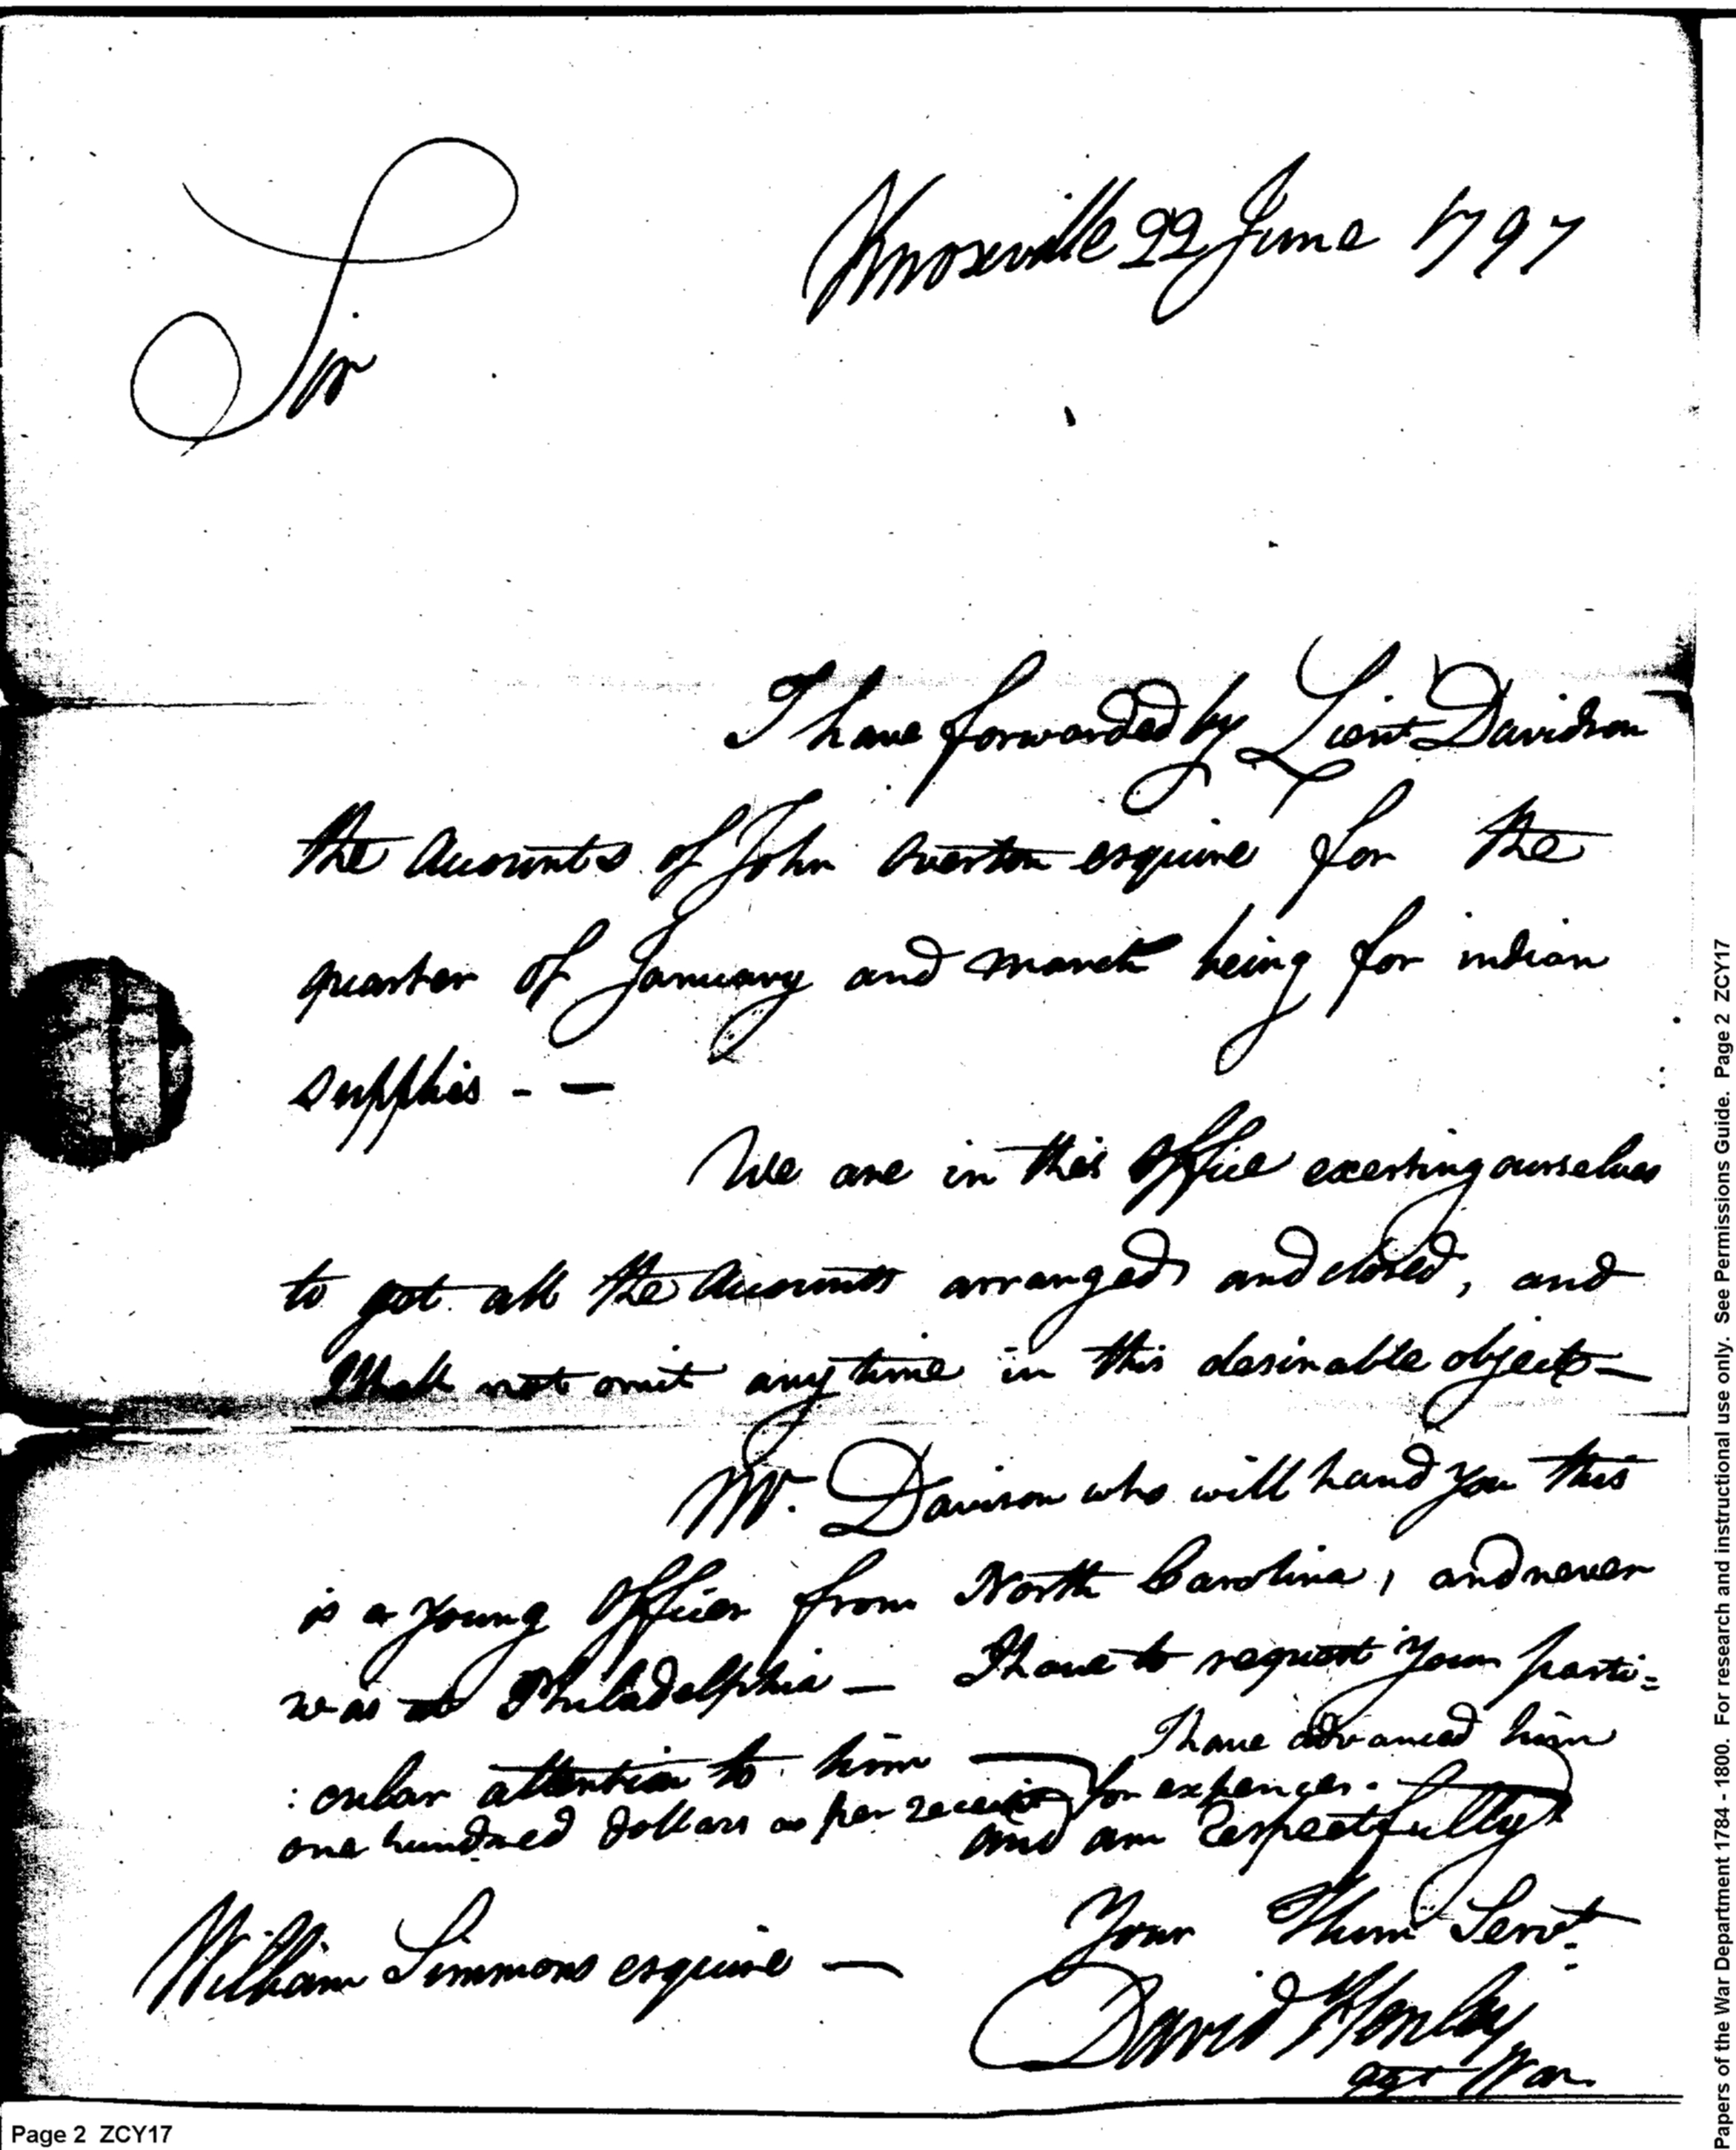 Knoxville 22 June 1797
Sir
I have forwarded by Lieut Davidson
the Accounts of John Overton esquire for the
quarter of January and March being for indian
supplies - —
We are in this office exerting ourselves
to get all the Accounts arranged and closed, and
shall not omit any time in this desirable object —
Mr. Davison who will hand you this
is a young officer from North Carolina, and never
was at Philadelphia — I have to request your parti=
:cular attention to him — I have advanced him
one hundred dollars as per receipt for expences.
and am Respectfully
Your Hum Servt.
William Simmons esquire —
David Henley
agt War
Page 2 ZCY17
Papers of the War Department 1784 - 1800. For research and instructional use only. See Permissions Guide. Page 2 ZCY17